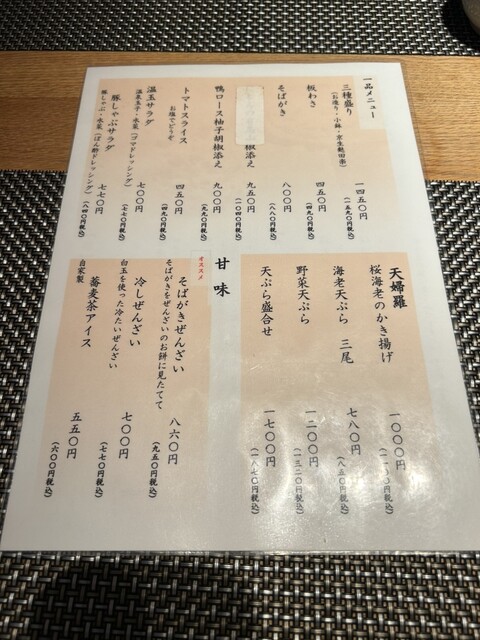 一品メニュー
三種盛り
(お造り・小鉢・京生麩田楽)
一四五〇円
(一五九〇円税込)
板わさ
四五〇円
(四九〇円税込)
そばがき
八〇〇円
(八八〇円税込)
椒添え
九五〇円
(一〇四〇円税込)
鴨ロース柚子胡椒添え
九〇〇円
(九九〇円税込)
トマトスライス
お塩でどうぞ
四五〇円
(四九〇円税込)
温玉サラダ
温泉玉子・水菜(ゴマドレッシング)
七〇〇円
(七七〇円税込)
豚しゃぶサラダ
豚しゃぶ・水菜(ぽん酢ドレッシング)
七七〇円
(八四〇円税込)
天婦羅
桜海老のかき揚げ
一〇〇〇円
(一一〇〇円税込)
海老天ぷら 三尾
七八〇円
(八五〇円税込)
野菜天ぷら
一二〇〇円
(一三二〇円税込)
天ぷら盛合せ
一七〇〇円
(一八七〇円税込)
甘味
オススメ
そばがきぜんざい
そばがきをぜんざいのお餅に見たてて
八六〇円
(九五〇円税込)
冷しぜんざい
白玉を使った冷たいぜんざい
七〇〇円
(七七〇円税込)
自家製
蕎麦茶アイス
五五〇円
(六〇〇円税込)